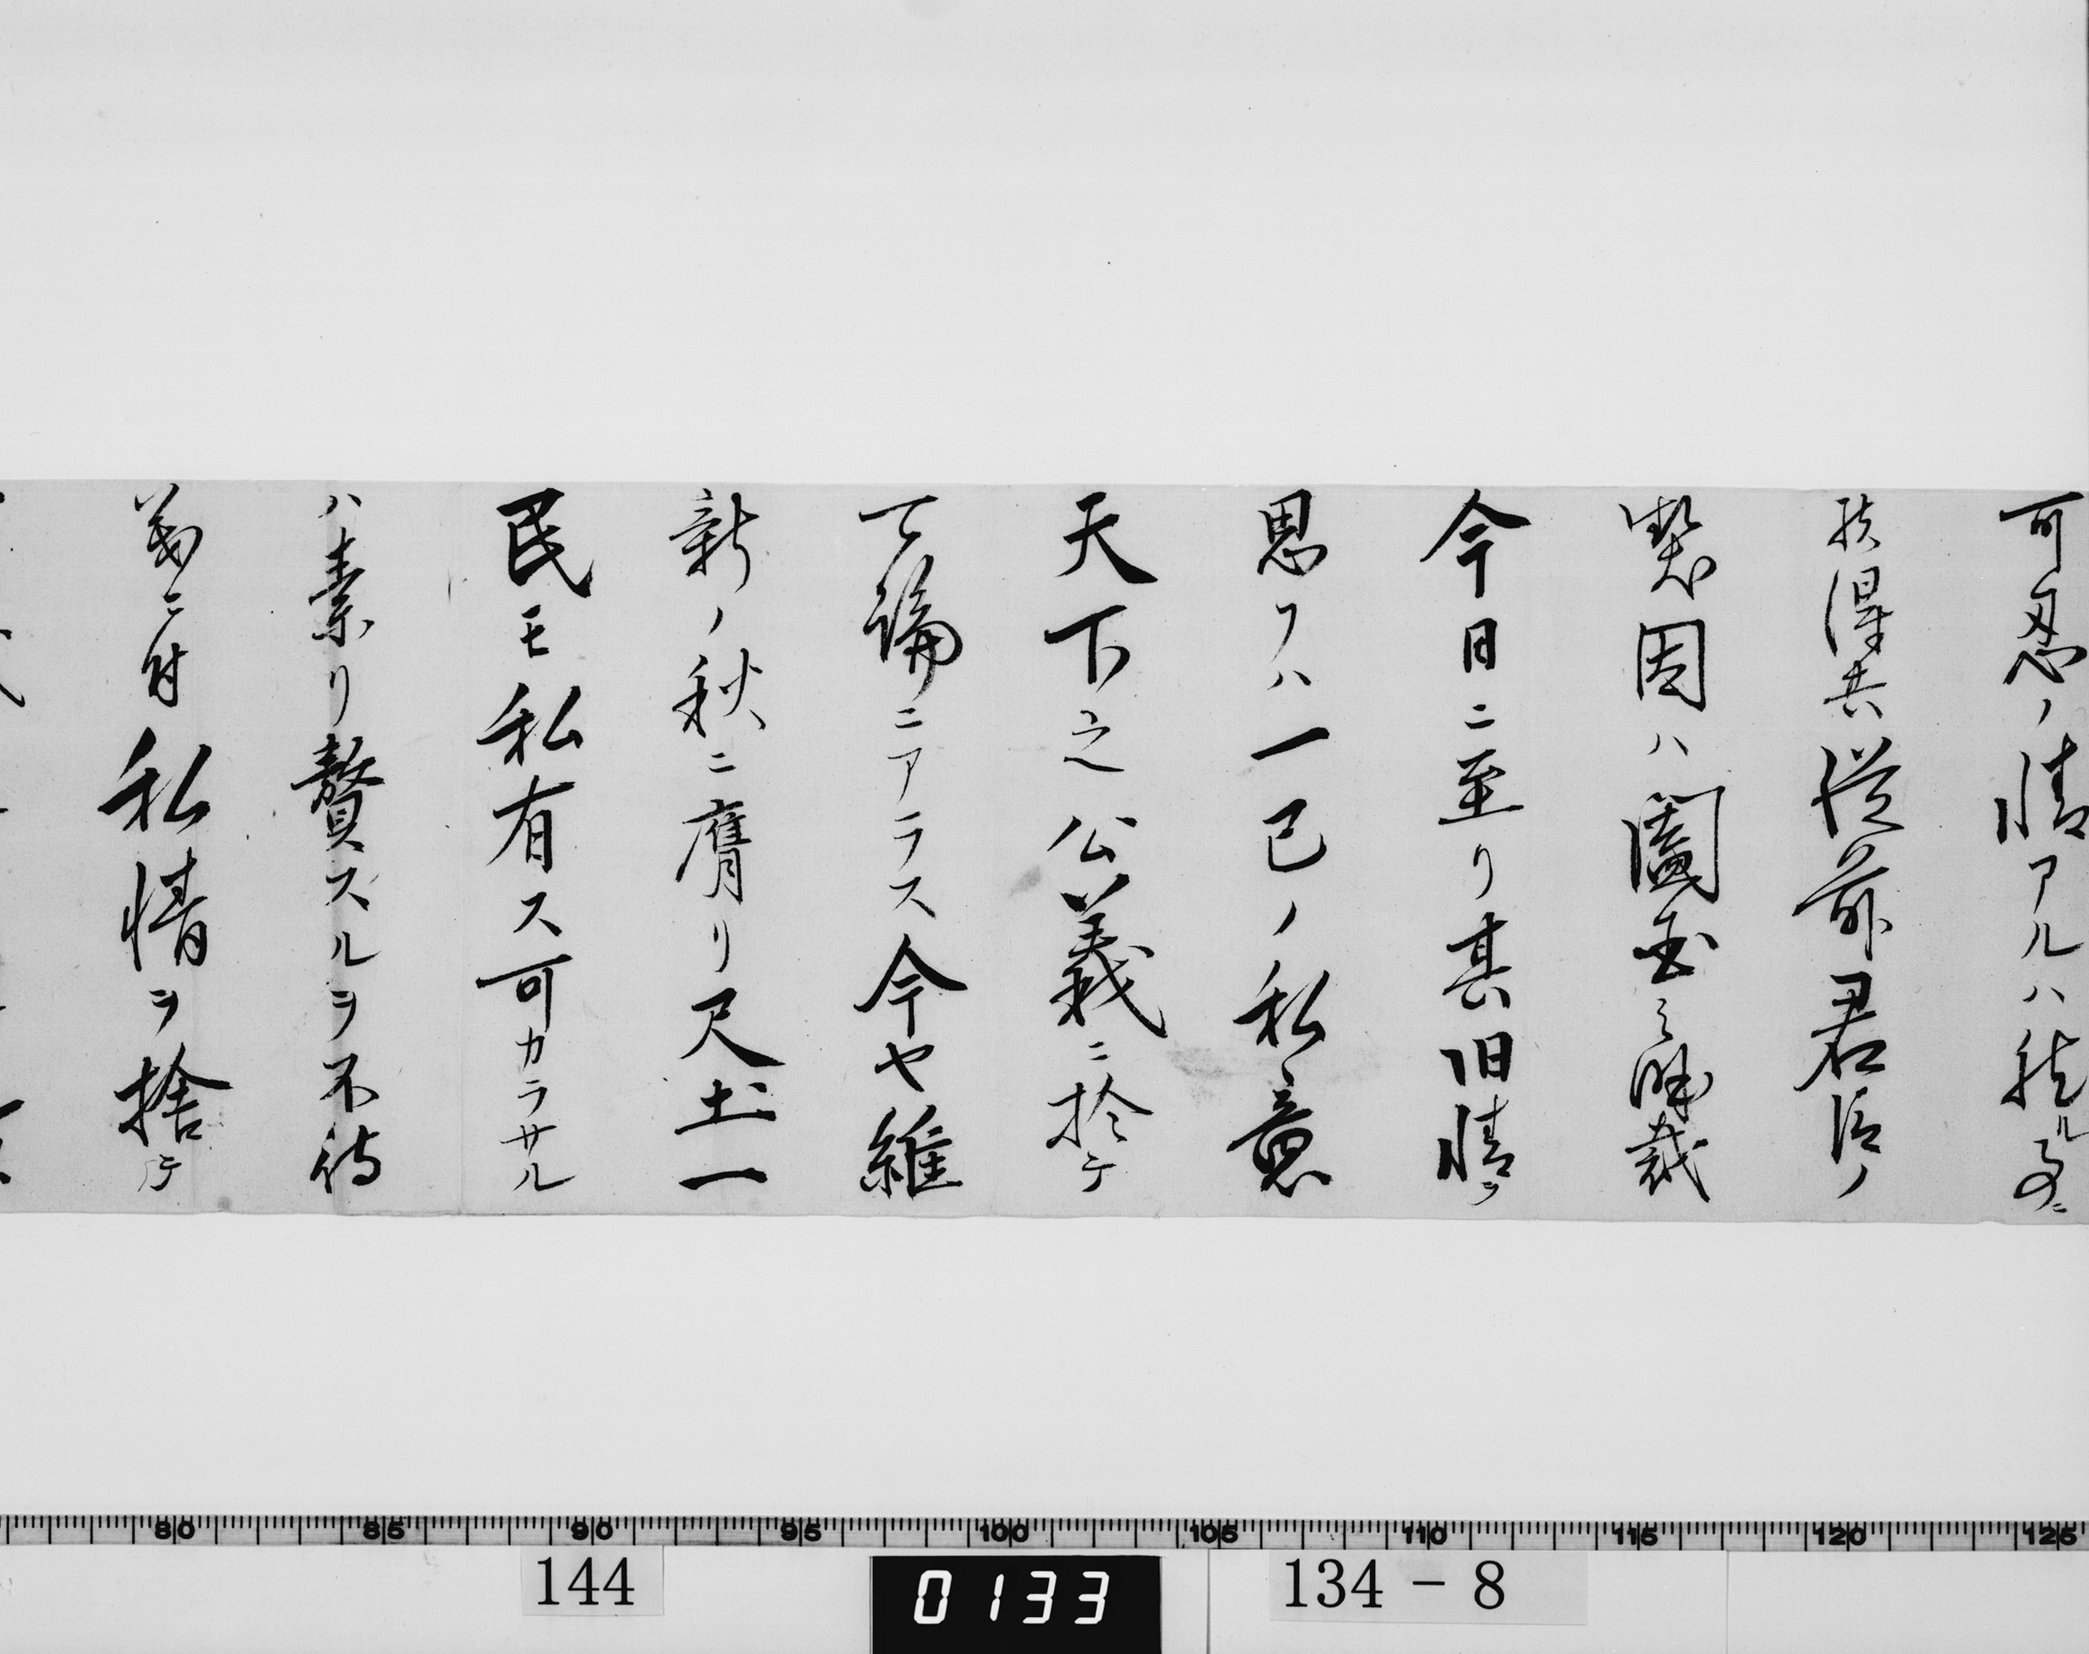 可忍ノ情アルハ然ル事ニ
候得共従前君臣ノ
契因ハ闔国ミ
今日ニ至リ其旧情ヲ
思フハ一己ノ私意
天下之公義ニ於テ
て論ニアラス今ヤ維
新ノ秋ニ膺リ尺土一
民モ私有ス可カラサル
ハ素リ贅スルヲ不待
義ニ付私情ヲ捨テ
80 85 90 95 100 105 110 115 120 125
144
0133
134-8